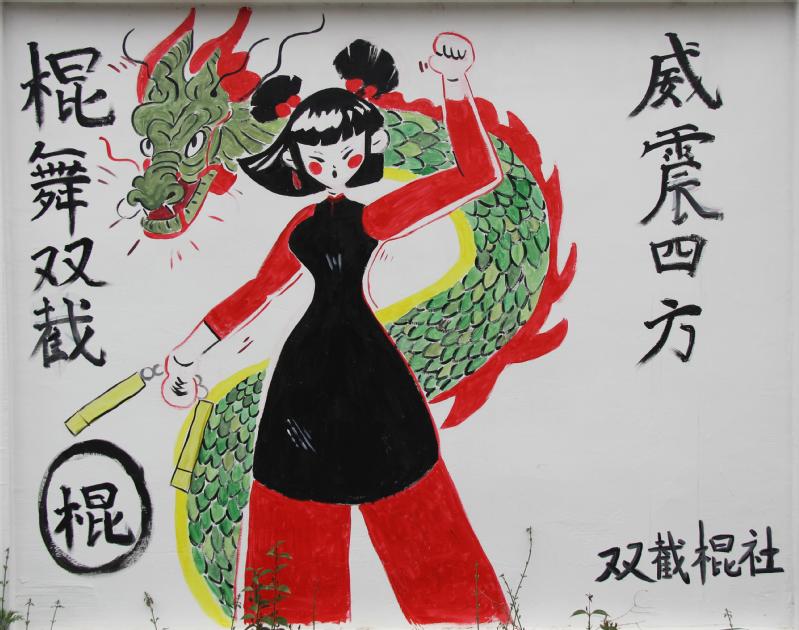 棍舞双截
威震四方
棍
双截棍社